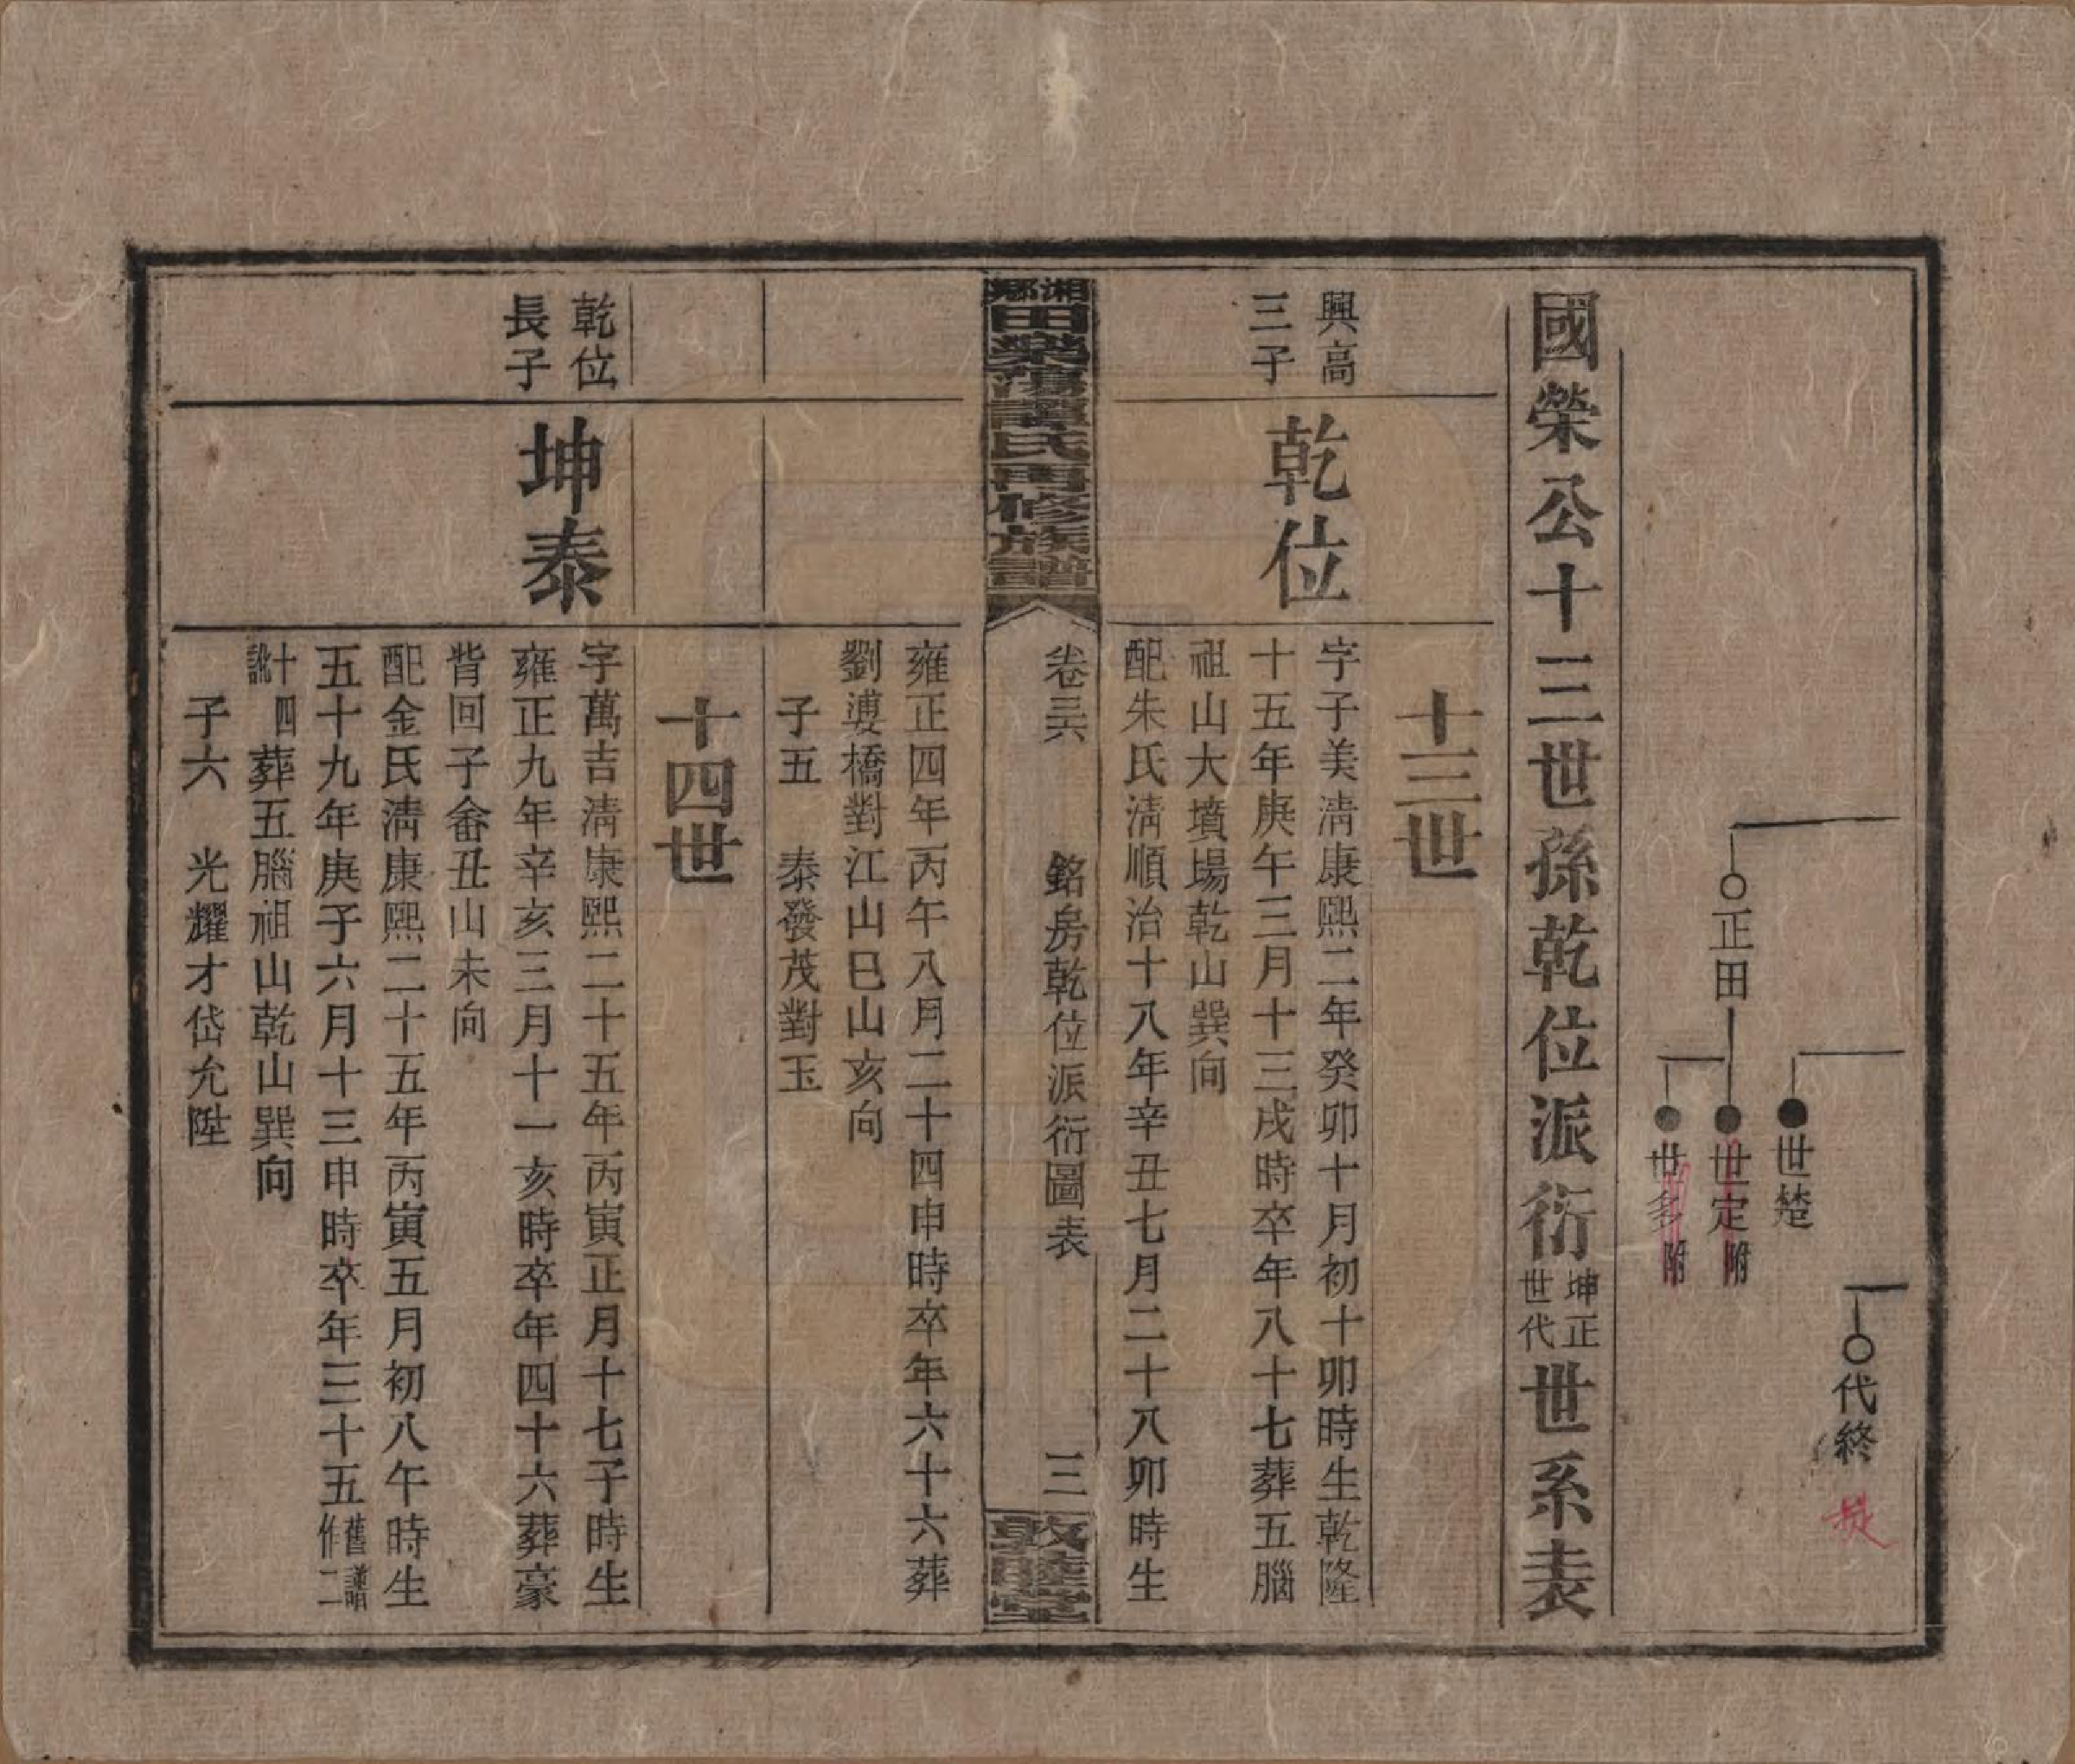 代終
世楚
正田
世定 附
世多 附
國榮公十三世孫乾位派衍坤正世代世系表
十三世
興高三子
乾位
字子美淸康熙二年癸卯十月初十卯時生乾隆
十五年庚午三月十三戌時卒年八十七葬五腦
祖山大墳場乾山巽向
配朱氏淸順治十八年辛丑七月二十八卯時生
湘鄉田榮蕩譚氏再修族譜
卷三六
銘房乾位派衍圖表
三
敦睦堂
雍正四年丙午八月二十四申時卒年六十六葬
劉婆橋對江山巳山亥向
子五 泰發茂對玉
十四世
乾位長子
坤泰
字萬吉淸康熙二十五年丙寅正月十七子時生
雍正九年辛亥三月十一亥時卒年四十六葬豪
背回子畲丑山未向
配金氏淸康熙二十五年丙寅五月初八午時生
五十九年庚子六月十三申時卒年三十五舊譜作二
十四訛葬五腦祖山乾山巽向
子六 光耀才岱允陞